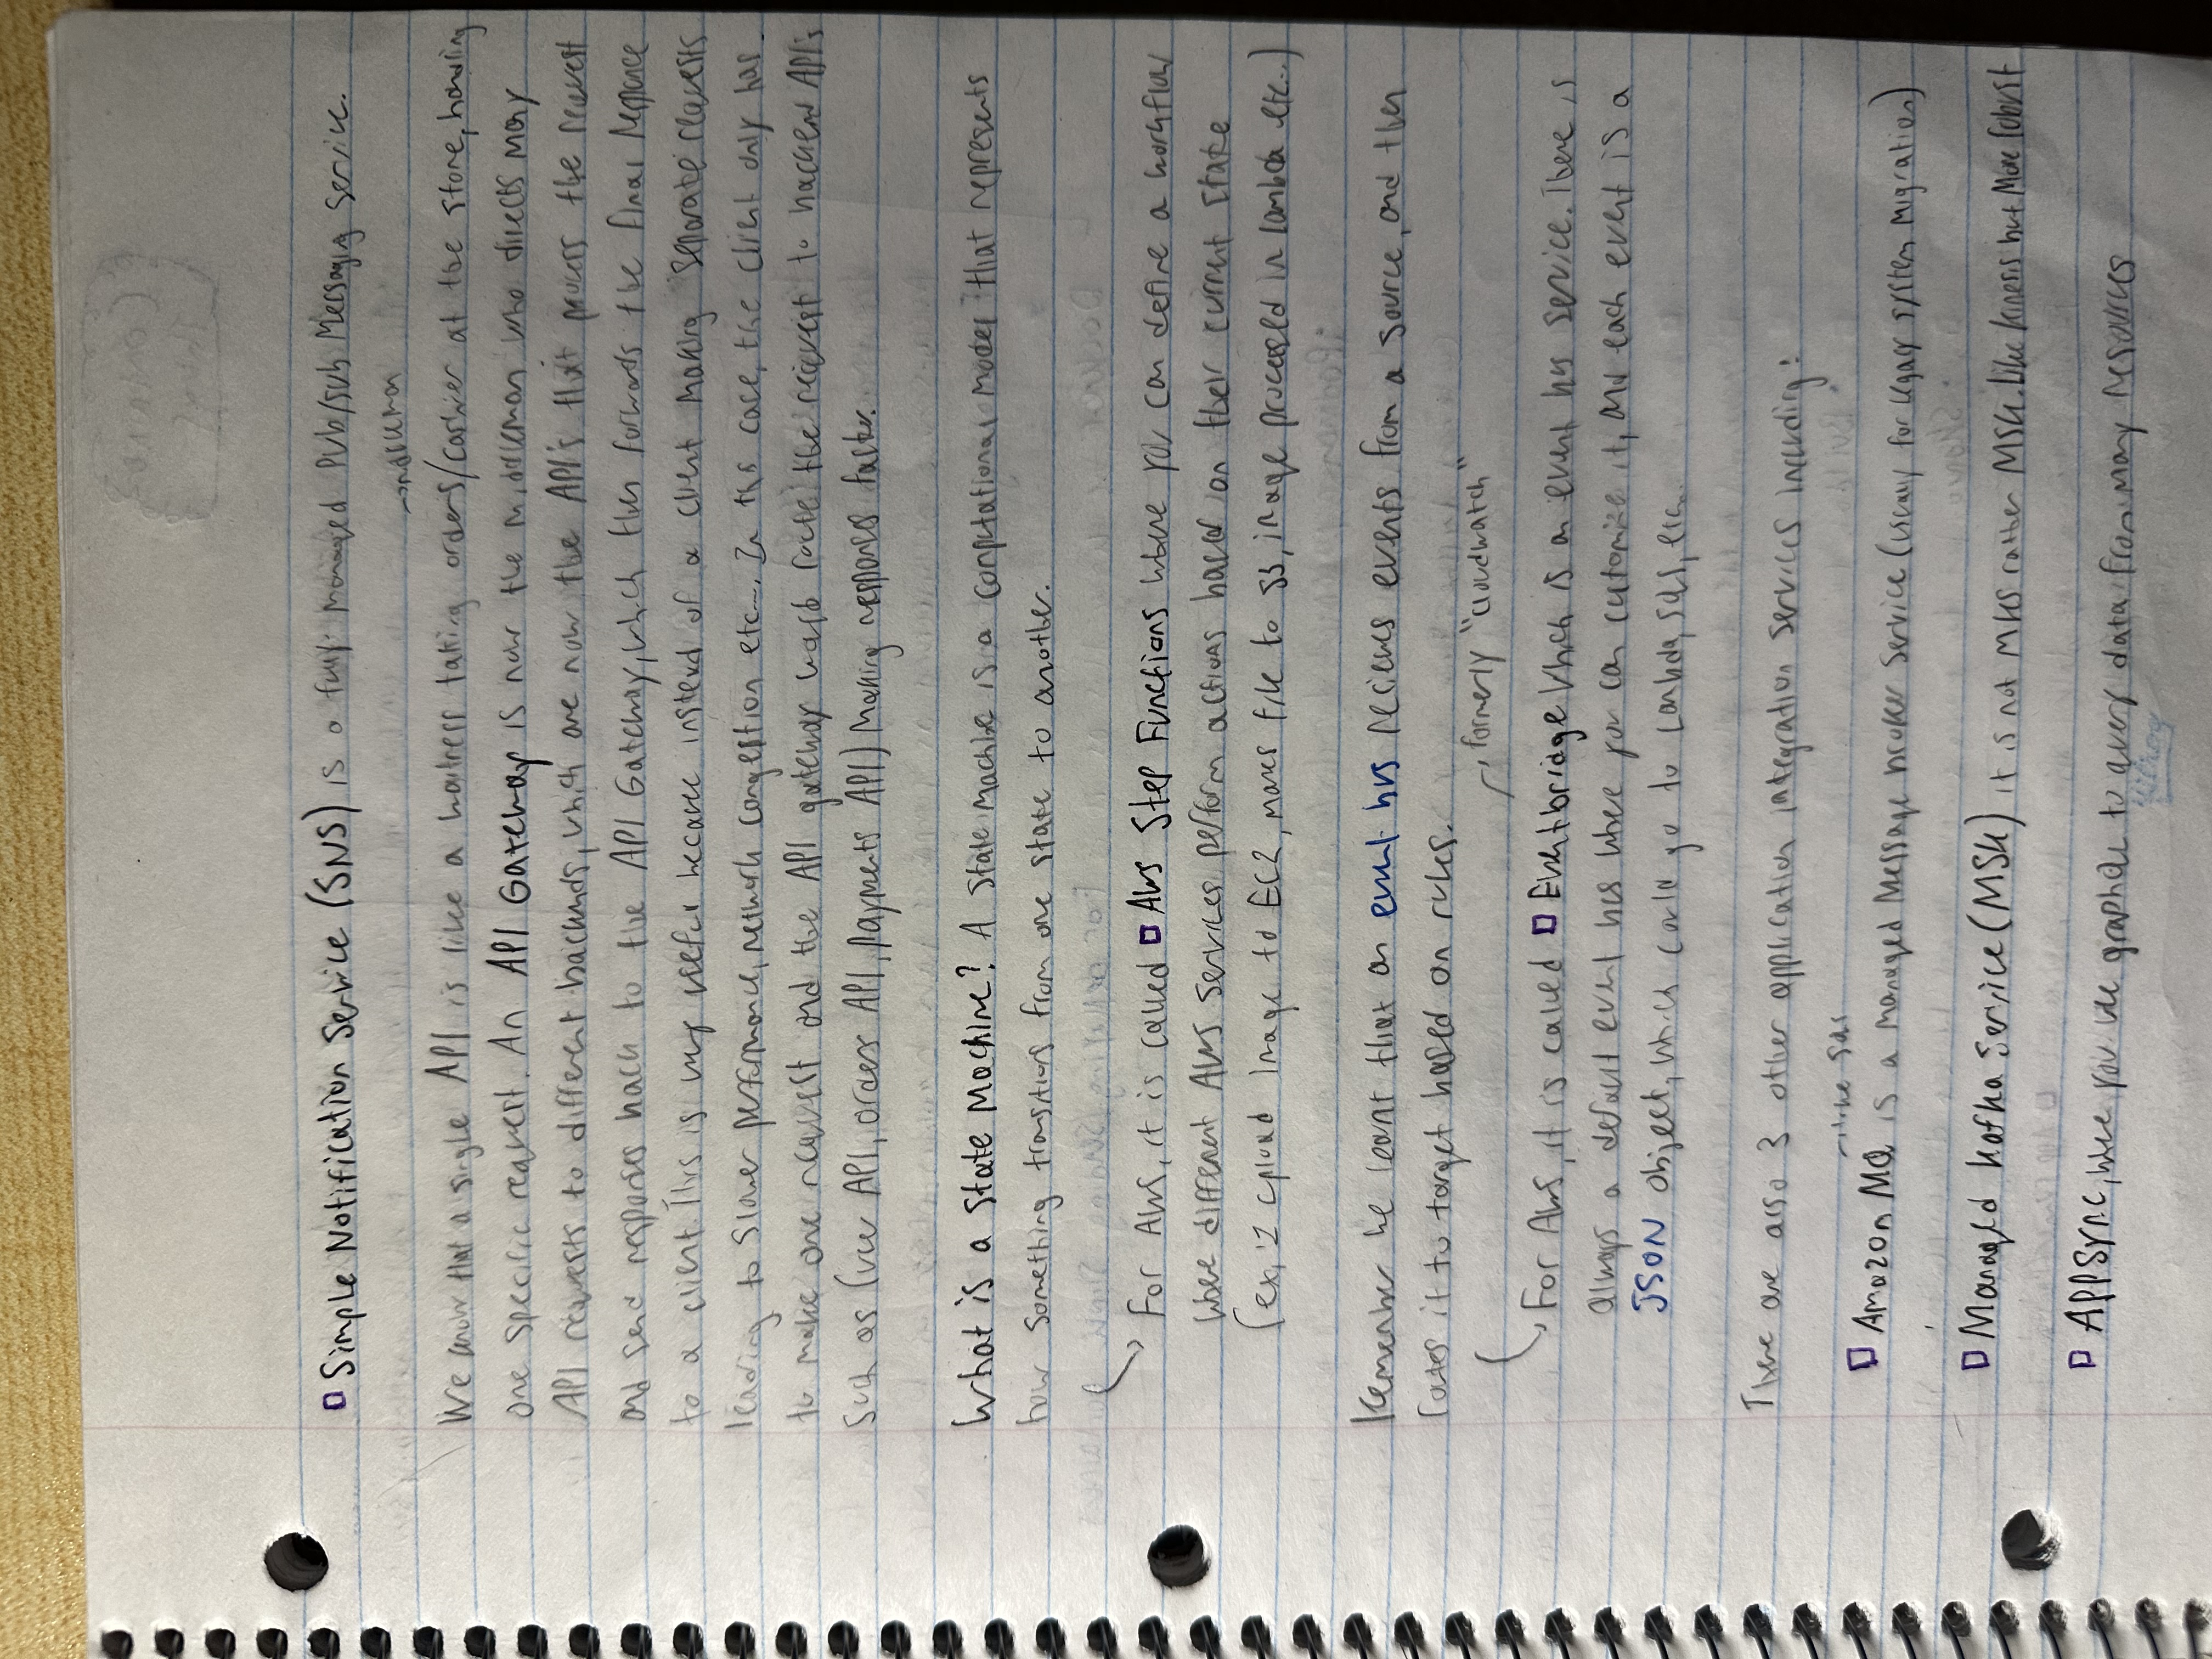 Simple Notification Service (SNS) is a fully managed Pub/sub Messaging service.
→ middleman
We know that a single API is like a waitress taking orders/cashier at the store, handling
one specific request. An API Gateway is now the middleman who directs many
API requests to different backends, which are now the API's that process the request
and send responses back to the API Gateway, which then forwards the final responce
to a client. This is very useful because instead of a client making separate requests
leading to slower performance, network congestion etc... In this case, the client only has
to make one request and the API gateway would route the request to backend API's
such as (user API, orders API, payments API) making responses faster.
What is a State Machine? A State Machine is a computational model that represents
how something transitions from one state to another.
For AWS, it is called AWS Step Functions where you can define a workflow
where different AWS services perform actions based on their current state
(ex, I upload image to EC2, moves file to S3, image processed in lambda etc..)
Remember we learnt that an event bus recieves events from a source, and then
routes it to target based on rules.
→ formerly "cloudwatch"
For AWS, it is called Eventbridge which is an event bus service. There is
always a default event bus where you can customize it, and each event is a
JSON object, which could go to Lambda, SQS, etc..
There are also 3 other application integration services including:
like SQS
Amazon MQ is a managed Message broker service (usually for legacy system migration)
Managed Kafka Service (MSK) it is not MKS rather MSK. Like kinesis but more robust
AppSync, where you use graphQL to query data from many resources